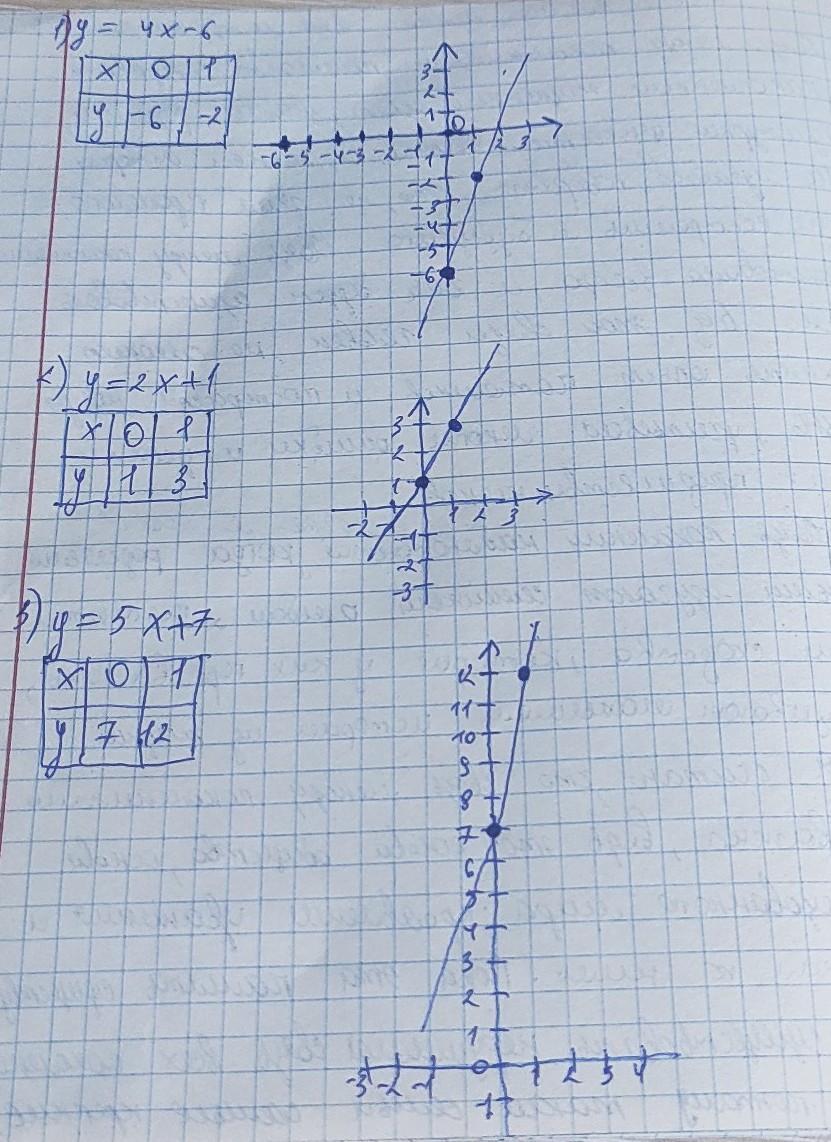 1) y = 4x-6
x 0 1
y -6 -2
3
2
1
0
-6 -5 -4 -3 -2 -1 1 2 3
-1
-2
-3
-4
-5
-6
2) y=2x+1
x 0 1
y 1 3
3
2
1
-2 -1 1 2 3
-1
-2
-3
3) y = 5x+7
x 0 1
y 7 12
12
11
10
9
8
7
6
5
4
3
2
1
-3 -2 -1 0 1 2 3 4
-1